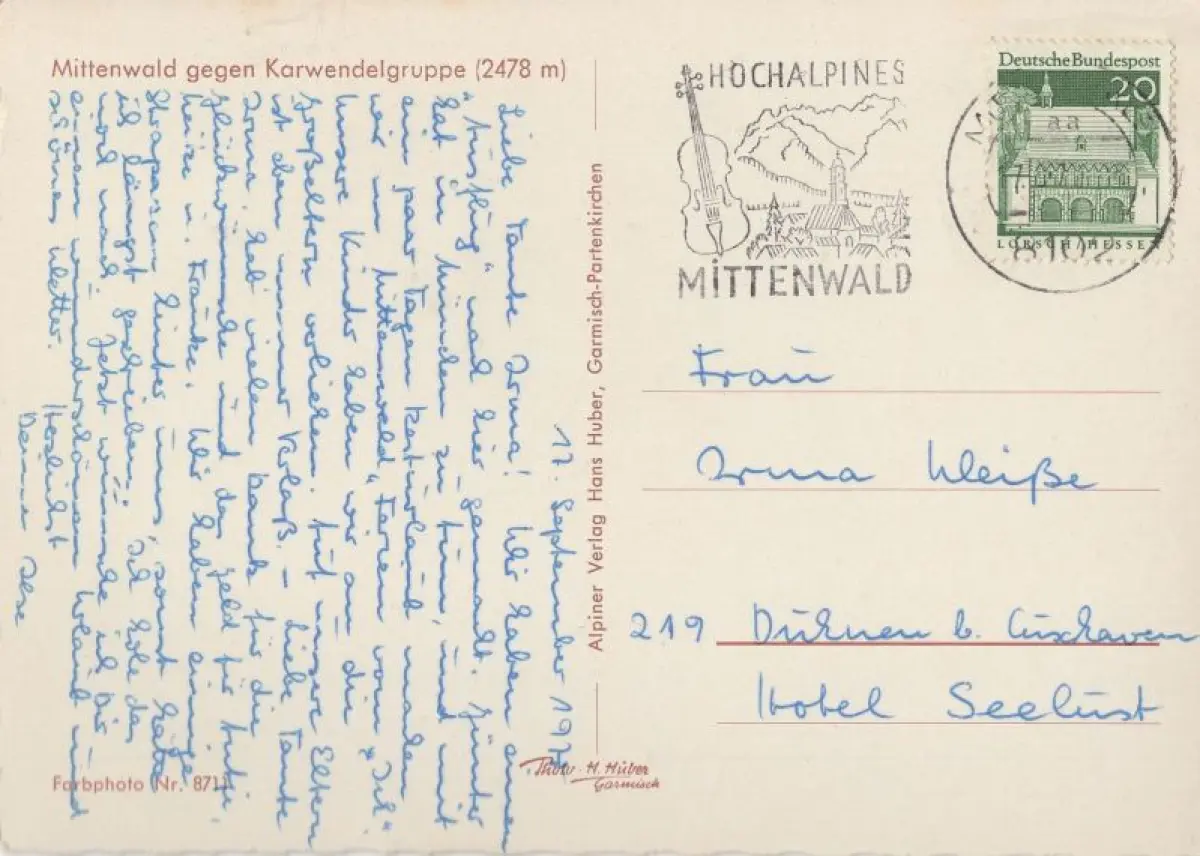 Mittenwald gegen Karwendelgruppe (2478 m)
17. September 197
Liebe Tante Irma! Wir haben einen
"Ausflug" nach hier gemacht. Günter
hat in München zu tun, und mit
ein paar Tagen Resturlaub machen
wir in Mittenwald "Ferien vom "Ich".
Unsere Kinder haben wir an die
Großeltern verliehen. Auf unsere Eltern
ist eben immer Verlaß. - Liebe Tante
Irma, hab vielen Dank für die
Glückwünsche und das Geld für Antje,
Heize u. Frauke. Wir haben einige
Strapazen hinter uns, sonst hätte
ich längst geschrieben. Ich hole das
noch nach. Jetzt wünsche ich Dir
einen wunderschönen Urlaub und
schönes Wetter.
Herzlichst
Deine Ilse
Farbphoto (Nr. 871)
Alpiner Verlag Hans Huber, Garmisch-Partenkirchen
Photo-H. Huber
Garmisch
HOCHALPINES
MITTENWALD
Deutsche Bundespost
20
aa
LORSCH/HESSEN
8102
Frau
Irma Weiße
219 Duhnen b. Cuxhaven
Hotel Seelust